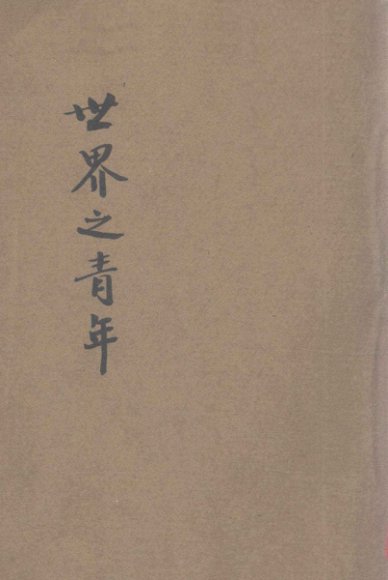 世界之青年